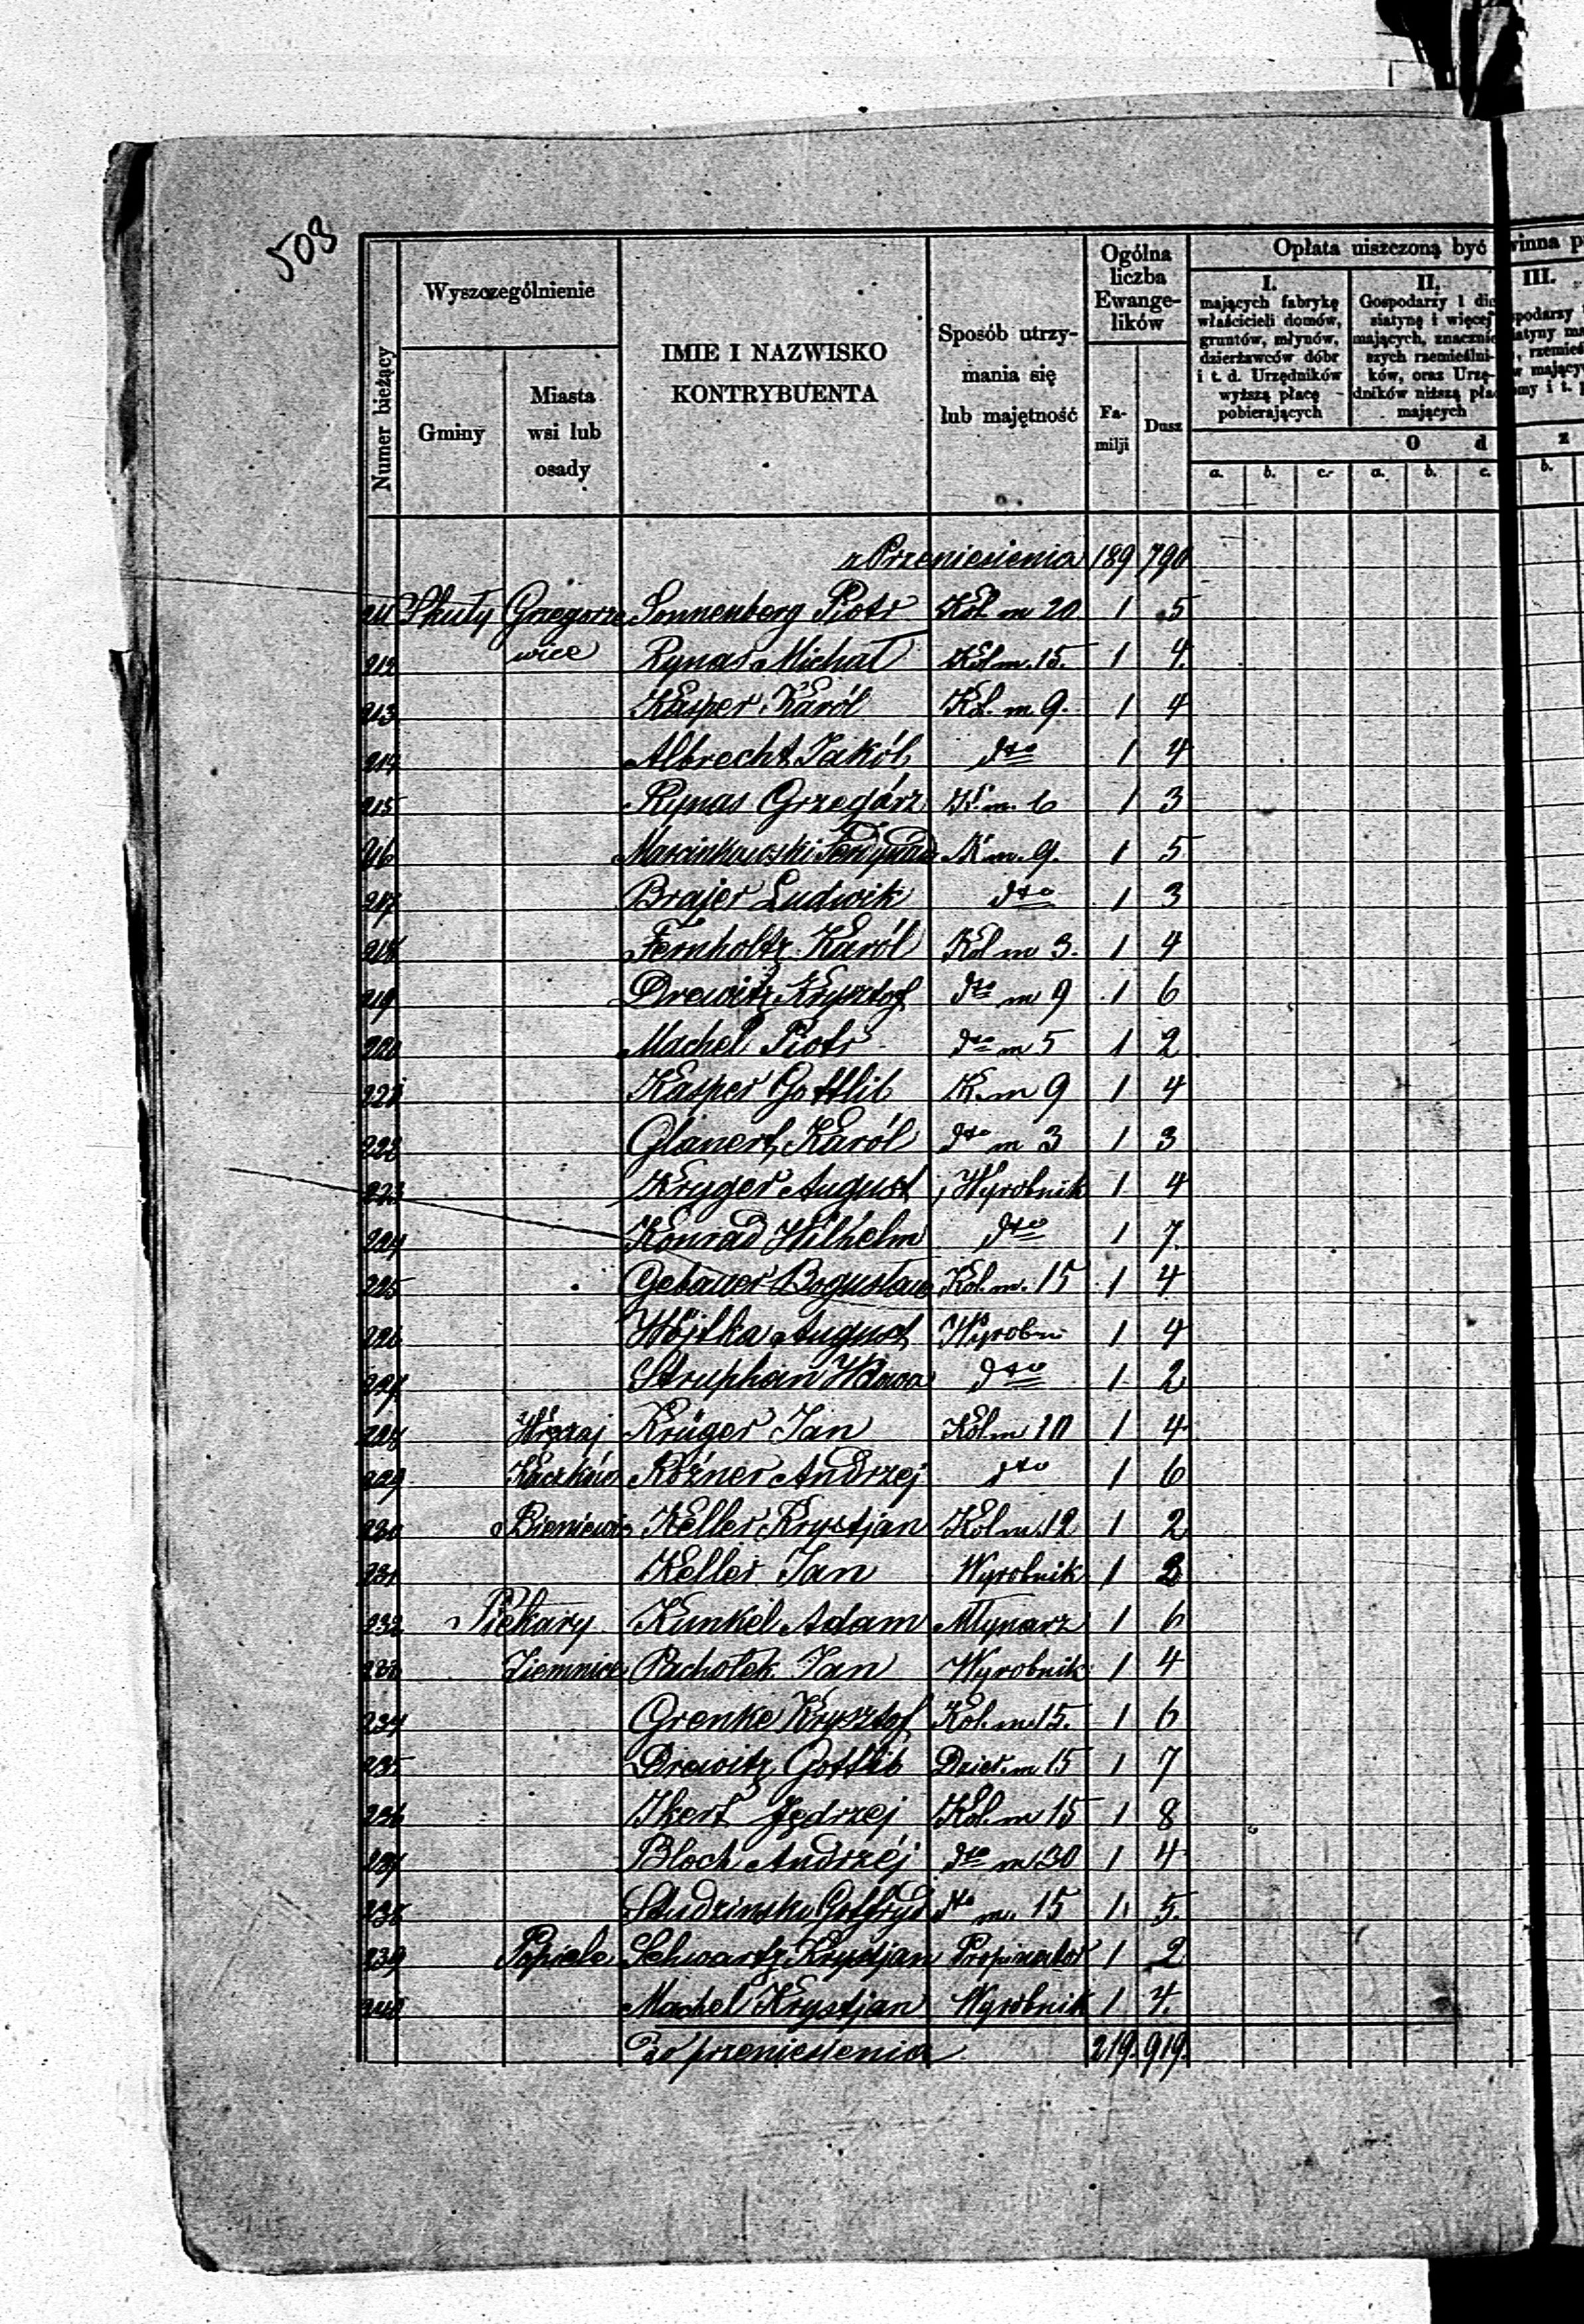 503
Numer bieżący
Wyszczególnienie
Gminy
Miasta wsi lub osady
IMIE I NAZWISKO KONTRYBUENTA
Sposób utrzymania się lub majętność
Ogólna liczba Ewangelików
Familji
Dusz
Opłata uiszczoną być winna p
I. mających fabrykę właścicieli domów, gruntów, młynów, dzierżawców dóbr i t. d. Urzędników wyższą płacę pobierających
II. Gospodarzy 1 dziesiatynę i więcej mających, znaczniejszych rzemieślników, oraz Urzędników niższą płac mających
III.
O d
a. b. c. a. b. c. b.
z Przeniesienia 189 790
211 Skuły Grzegorze Sonnenberg Piotr Kol. m 20 1 5
212 wice Rynas Michał Kol m. 15. 1 4.
213 Kasper Karól Kol. m 9. 1 4
214 Albrecht Jakób dto 1 4
215 Rynas Grzegórz K. m. 6 1 3
216 Marcinkowski Ferdynand K m. 9. 1 5
217 Brajer Ludwik dto 1 3
218 Fernholtz Karól Kol m 3. 1 4
219 Drewitz Krysztof dto m 9 1 6
220 Machel Piotr dto m 5 1 2
221 Kasper Gottlib K. m 9 1 4
222 Glanert Karól dto m 3 1 3
223 Kryger August Wyrobnik 1 4
224 Konrad Wilhelm dto 1 7
225 Gebauer Bogusław Kol. m. 15 1 4
226 Wójtka August Wyrobn 1 4
227 Struphan Wdowa dto 1 2
228 Krüger Jan Kol m 10 1 4
229 Kaczków Rózner Andrzej dto 1 6
230 Bieniewic Keller Krystjan Kol m. 12 1 2
231 Keller Jan Wyrobnik 1 3
232 Piekary Kunkel Adam Młynarz 1 6
233 Ziemnice Pachołek Jan Wyrobnik 1 4
234 Grenke Krysztof Kol. m. 15. 1 6
235 Drewitz Gottlib Dzier. m 15 1 7
236 Ikert Jędrzej Kol. m 15 1 8
237 Bloch Andrzéj dto m. 30 1 4
238 Studzinski Gotfryd dto m. 15 1 5.
239 Popiele Schwartz Krystjan Propinator 1 2
240 Machel Krystjan Wyrobnik 1 4.
Do przeniesienia 219. 919.